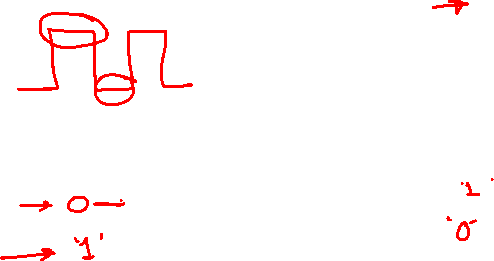 → 0 -
'1'
→ '1'
'0'